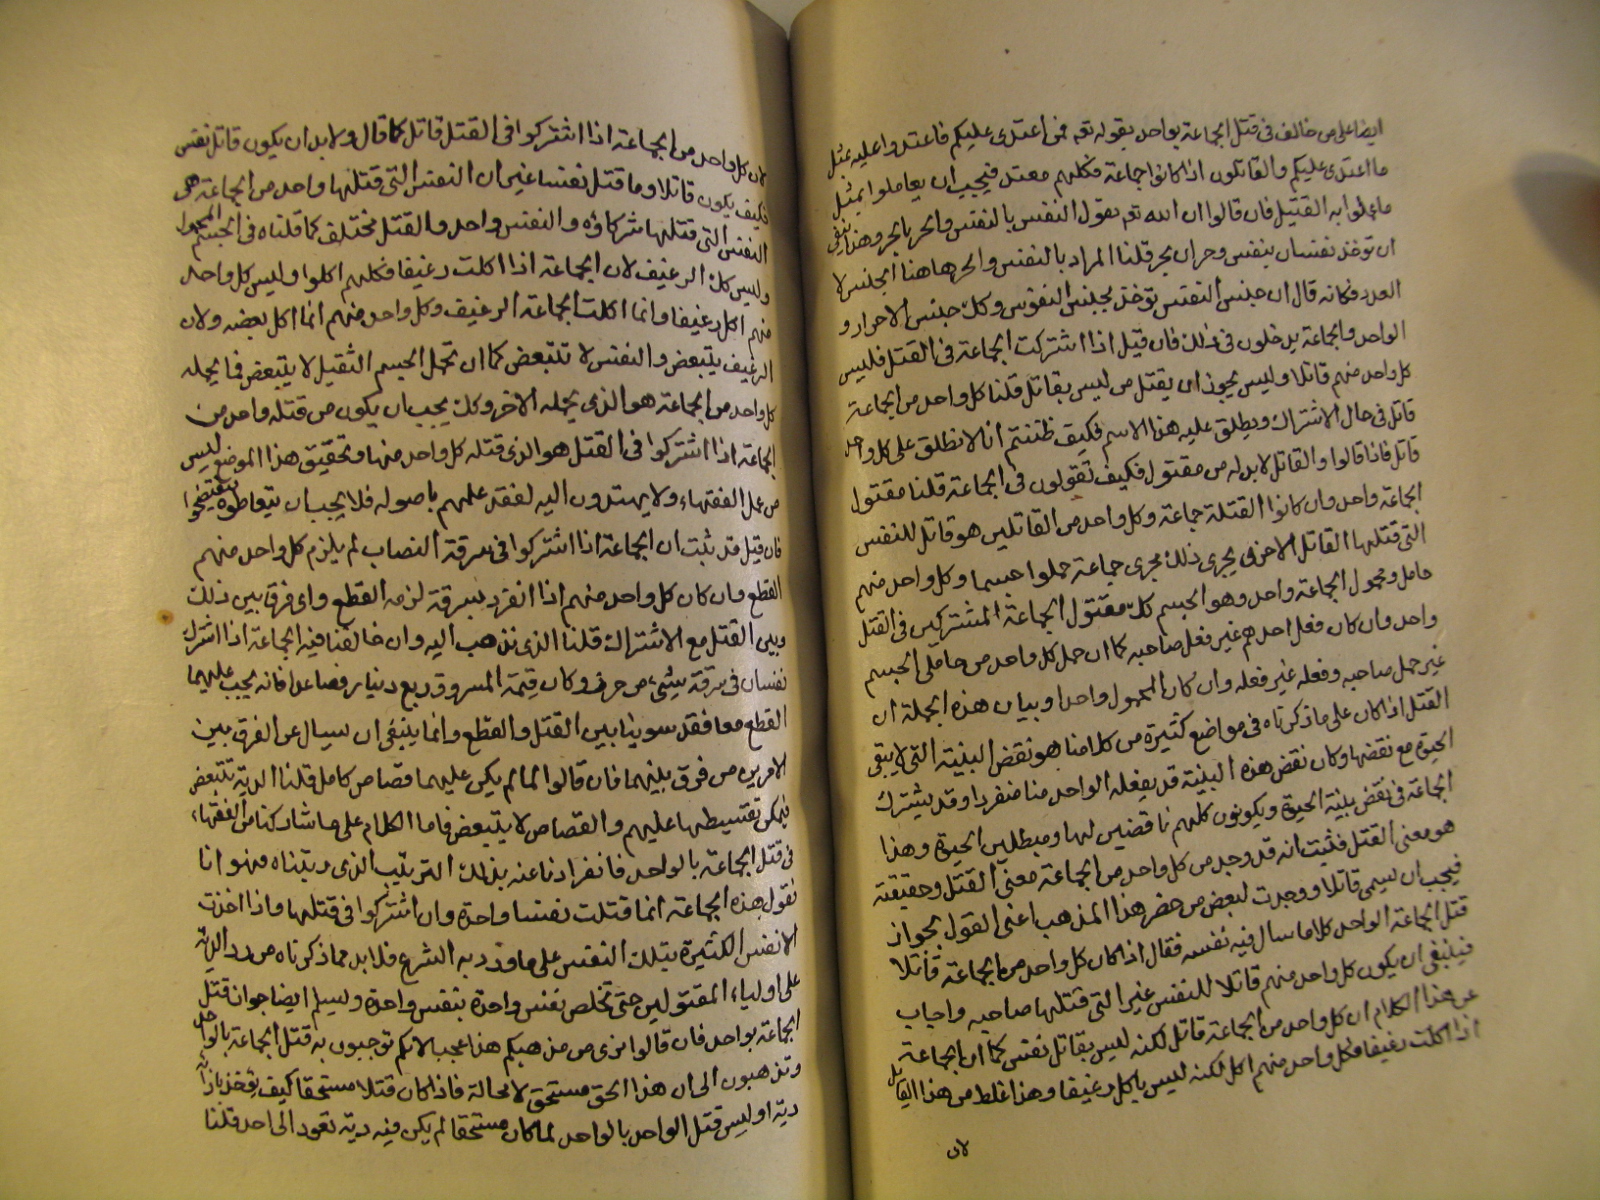 ايضا على من خالف في قتل الجماعة بواحد بقوله تعه فمن اعتدى عليكم فاعتدوا عليه بمثل
ما اعتدى عليكم والقاتلون اذا كانوا جماعة فكلهم معتد فيجب ان يعاملوا بمثل
ما عاملوا به القتيل فان قالوا ان الله تعه يقول النفس بالنفس والحر بالحر وهذا ينفى
ان توخذ نفسان بنفس وحران بحر قلنا المراد بالنفس والحر هاهنا الجنس لا
العدد فكانه قال ان جنس النفس توخذ بجنس النفوس وكك جنس الاحرار و
الواحد والجماعة يدخلون في ذلك فان قيل اذا اشتركت الجماعة في القتل فليس
كل واحد منهم قاتلا وليس يجوز ان يقتل من ليس بقاتل قلنا كل واحد من الجماعة
قاتل في حال الاشتراك ويطلق عليه هذا الاسم فكيف ظننتم انا لا نطلق على كل واحد
قاتل فاذا قالوا والقاتل لا بد له من مقتول فكيف تقولون في الجماعة قلنا مقتول
الجماعة واحد وان كانوا القتلة جماعة وكل واحد من القاتلين هو قاتل للنفس
التي قتلها القاتل الاخر ويجرى ذلك مجرى جماعة حملوا جسما وكل واحد منهم
حامل ومحمول الجماعة واحد وهو الجسم كك مقتول الجماعة المشتركين في القتل
واحد وان كان فعل احدهم غير فعل صاحبه كما ان حمل كل واحد من حاملى الجسم
غير حمل صاحبه وفعله غير فعله وان كان المحمول واحدا وبيان هذه الجملة ان
القتل اذا كان على ما ذكرناه في مواضع كثيرة من كلامنا هو نقض البنية التي لا يبقى
الحيوة مع نقضها وكان نقض هذه البنية قد يفعله الواحد منا منفردا وقد يشترك
الجماعة في نقض بنية الحيوة ويكونون كلهم ناقضين لها ومبطلين الحيوة وهذا
هو معنى القتل فثبت انه قد وجد من كل واحد من الجماعة معنى القتل وحقيقته
فيجب ان يسمى قاتلا ووجدت لبعض من حضر هذا المذهب اعنى القول بجواز
قتل الجماعة الواحد كلاما سال فيه نفسه فقال اذا كان كل واحد من الجماعة قاتلا
فينبغى ان يكون كل واحد منهم قاتلا للنفس غير التي قتلها صاحبه واجاب
عن هذا الكلام ان كل واحد من الجماعة قاتل لكنه ليس بقاتل نفس كما ان الجماعة
اذا اكلت رغيفا فكل واحد منهم اكل لكنه ليس باكل رغيفا وهذا غلط من هذا القائل
لان
لان كل واحد من الجماعة اذا اشتركوا في القتل قاتل كما قال ولا بد ان يكون قاتل نفس
فكيف يكون قاتلا وما قتل نفسا غير ان النفس التي قتلها واحد من الجماعة هي
النفس التي قتلها شركاؤه والنفس واحد والقتل مختلف كما قلناه في الجسم المحمول
وليس كك الرغيف لان الجماعة اذا اكلت رغيفا فكلهم اكلوا وليس كل واحد
منهم اكل رغيفا وانما اكلت الجماعة الرغيف وكل واحد منهم انما اكل بعضه ولان
الرغيف يتبعض والنفس لا تتبعض كما ان تحمل الجسم الثقيل لا يتبعض فما يحمله
كل واحد من الجماعة هو الذى يحمله الاخر وكك يجب ان يكون من قتله واحد من
الجماعة اذا اشتركوا في القتل هو الذى قتله كل واحد منها وتحقيق هذا الموضع ليس
من عمل الفقهاء ولا يهتدون اليه لفقد علمهم باصوله فلا يجب ان يتعاطوه فيفتضحوا
فان قيل قد ثبت ان الجماعة اذا اشتركوا في سرقة النصاب لم يلزم كل واحد منهم
القطع وان كان كل واحد منهم اذا انفرد بسرقة لزمه القطع واى فرق بين ذلك
وبين القتل مع الاشتراك قلنا الذى نذهب اليه وان خالفنا فيه الجماعة اذا اشترك
نفسان في سرقة شيئ من حرز وكان قيمة المسروق ربع دينار فصاعدا فانه يجب عليهما
القطع معا فقد سوينا بين القتل والقطع وانما ينبغى ان يسال عن الفرق بين
الامرين من فرق بينهما فان قالوا لما لم يكن عليهما قصاص كامل قلنا الدية تتبعض
فيمكن تقسيطها عليهم والقصاص لا يتبعض فاما الكلام على ما شاركنا من الفقهاء
في قتل الجماعة بالواحد فانفرادنا عنه بذلك الترتيب الذى رتبناه فهو انا
نقول هذه الجماعة انما قتلت نفسا واحدة وان اشتركوا في قتلها واذا اخذت
الانفس الكثيرة بتلك النفس على ما ورد به الشرع فلا بد مما ذكرناه من رد الدية
على اولياء المقتولين حتى تخلص نفس واحدة بنفس واحدة ويسلم ايضا جواز قتل
الجماعة بواحد فان قالوا نرى من مذهبكم هذا عجبا لانكم توجبون به قتل الجماعة بالواحد
وتذهبون الى ان هذا الحق مستحق لا محالة فاذا كان قتلا مستحقا كيف يوخذ بازائه
دية او ليس قتل الواحد بالواحد لما كان مستحقا لم يكن فيه دية تعود الى احد قلنا